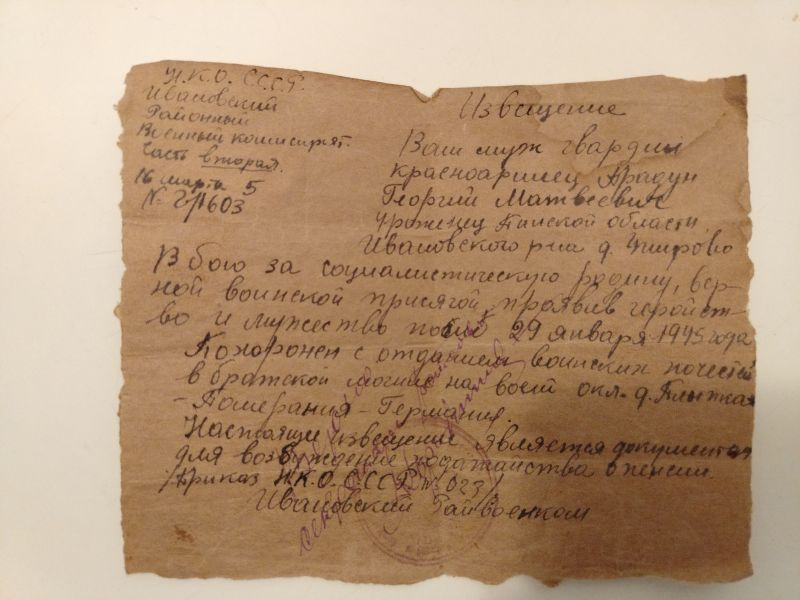 Н.К.О. С.С.С.Р.
Ивановский
Районный
Военный комисирят.
Часть вторая.
16 марта 5
№ 2/1603
Извещение
Ваш муж гвардии
красноармеец
Георгий Матвеевич
уроженец Пинской области
Ивановского р-на д.
В бою за социалистическую родину, вер-
ной воинской присягой, проявив геройст-
во и мужество погиб 29 января 1945 года
Похоронен с отданием воинских почестей
в братской могиле на вост. окл. д.
- Померания - Германия.
Настоящие извещение является документом
для возбуждение ходатайства о пенсии.
/Приказ Н.К.О. СССР № 023/
Ивановский Райвоенком